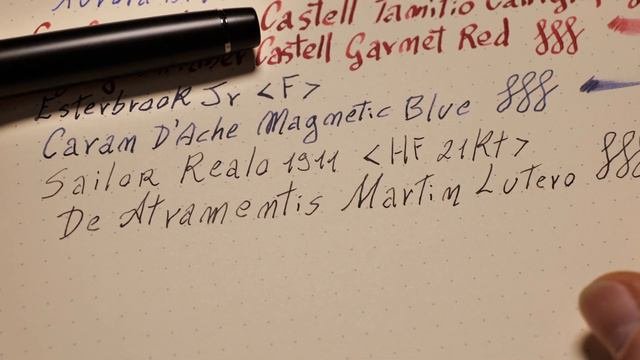 Castell
Castell Garnet Red
Esterbrook Jr <F>
Caram D'Ache Magnetic Blue
Sailor Realo 1911 <HF 21Kt>
De Atramentis Martin Lutero